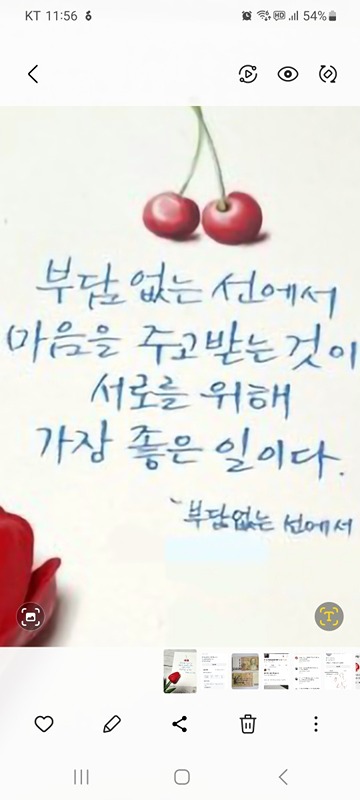 KT 11:56
54%
부담 없는 선에서
마음을 주고받는 것이
서로를 위해
가장 좋은 일이다.
부담없는 선에서
T